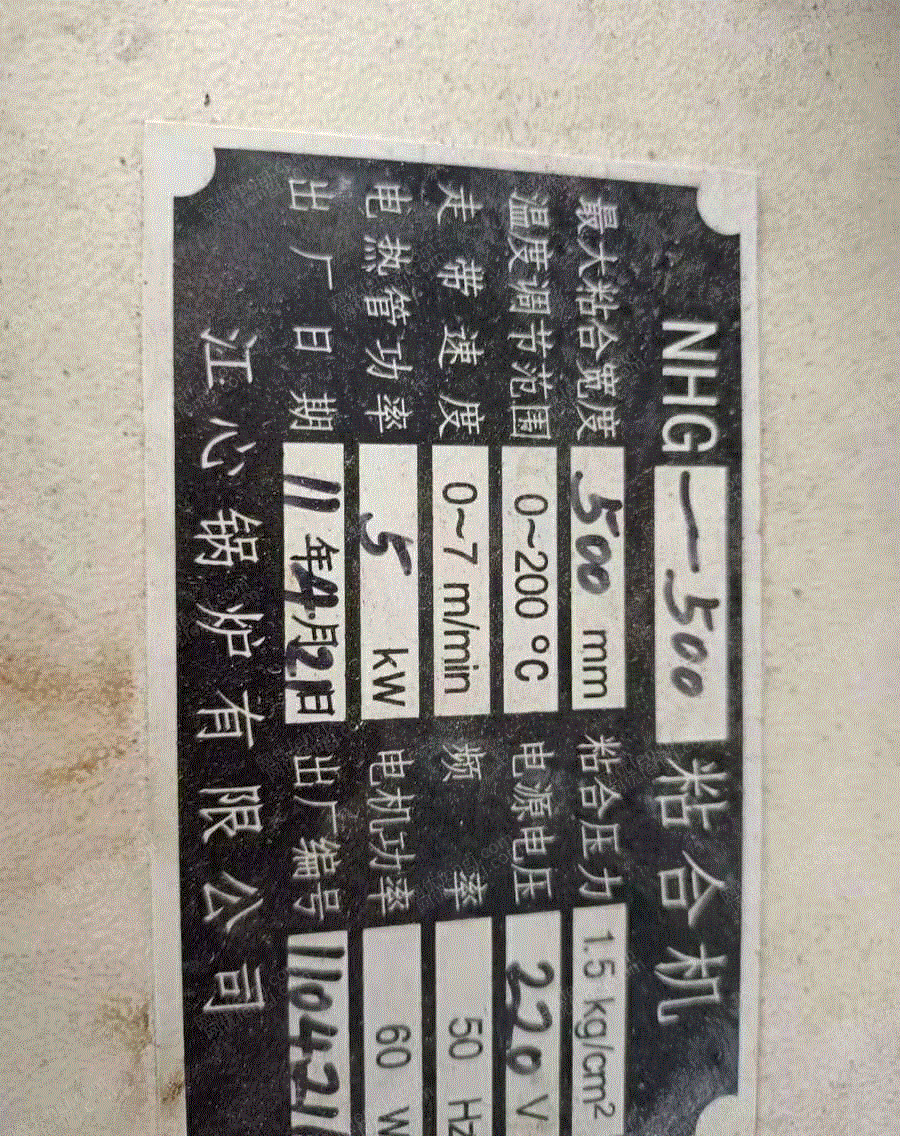 NHG-500 粘合机
最大粘合宽度 500 mm 粘合压力 1.5 kg/cm²
温度调节范围 0~200 ℃ 电源电压 220 V
走带速度 0~7 m/min 频率 50 Hz
电热管功率 5 kW 电机功率 60 W
出厂日期 11年4月21日 出厂编号 110421
江心锅炉有限公司